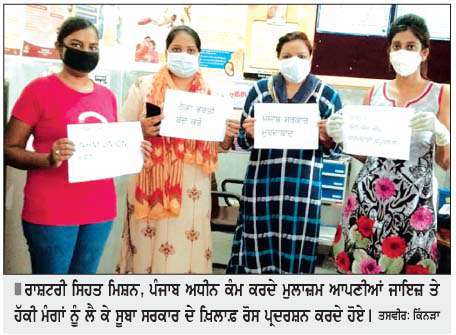 NHM UNION
ਠੇਕਾ ਭਰਤੀ
ਬੰਦ ਕਰੋ
ਪੰਜਾਬ ਸਰਕਾਰ
ਮੁਰਦਾਬਾਦ
ਰਾਸ਼ਟਰੀ ਸਿਹਤ ਮਿਸ਼ਨ, ਪੰਜਾਬ ਅਧੀਨ ਕੰਮ ਕਰਦੇ ਮੁਲਾਜ਼ਮ ਆਪਣੀਆਂ ਜਾਇਜ਼ ਤੇ
ਹੱਕੀ ਮੰਗਾਂ ਨੂੰ ਲੈ ਕੇ ਸੂਬਾ ਸਰਕਾਰ ਦੇ ਖ਼ਿਲਾਫ਼ ਰੋਸ ਪ੍ਰਦਰਸ਼ਨ ਕਰਦੇ ਹੋਏ। ਤਸਵੀਰ: ਕਿੰਨੜਾ